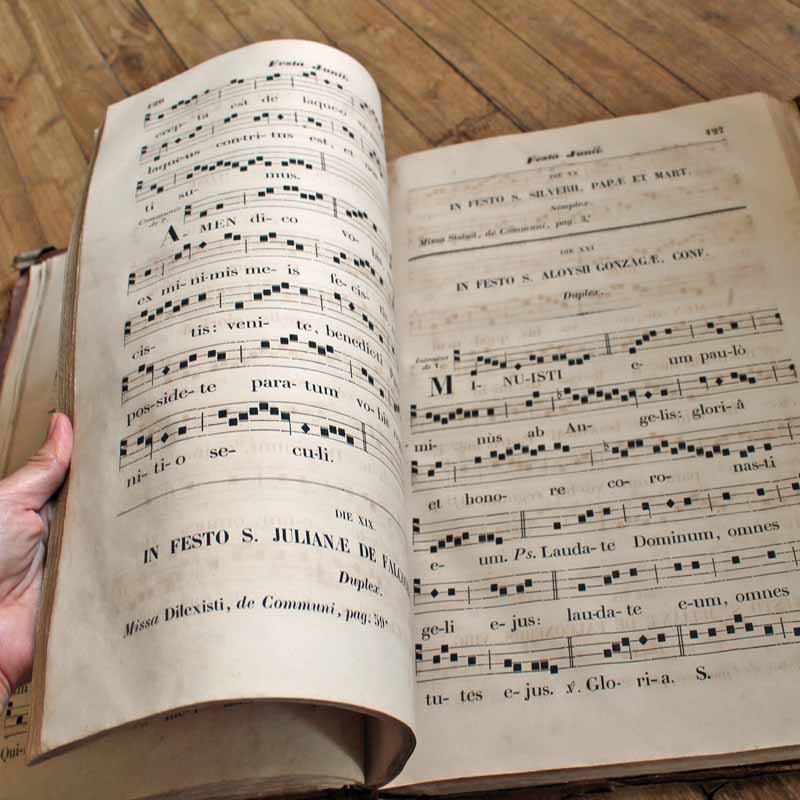 Festa Junii.
126
erep- ta est de laqueo
laqueus contri-tus est, et nos
ti su- mus.
Communio
A- MEN di- co vo-
ex mi-ni-mis me- is fe-cis-
cis- tis: veni- te, benedicti
pos-side-te para- tum vo-bis
ni-ti-o se- cu-li.
DIE XIX.
IN FESTO S. JULIANÆ DE
Duplex.
Missa Dilexisti, de Communi, pag. 59*
Festa Junii. 127
DIE XX
IN FESTO S. SILVERII, PAPÆ ET MART.
Simplex.
Missa Statuit, de Communi, pag. 3*
DIE XXI
IN FESTO S. ALOYSII GONZAGÆ, CONF.
Duplex.
Introitus
M I- NU-ISTI e- um pau-lò
mi- nùs ab An- ge-lis: glori-â
et hono- re co- ro- nas-ti
e- um. Ps. Lauda-te Dominum, omnes
ge-li e-jus: lau-da-te e-um, omnes
tu-tes e-jus. ℣. Glo- ri-a. S.
Qui-